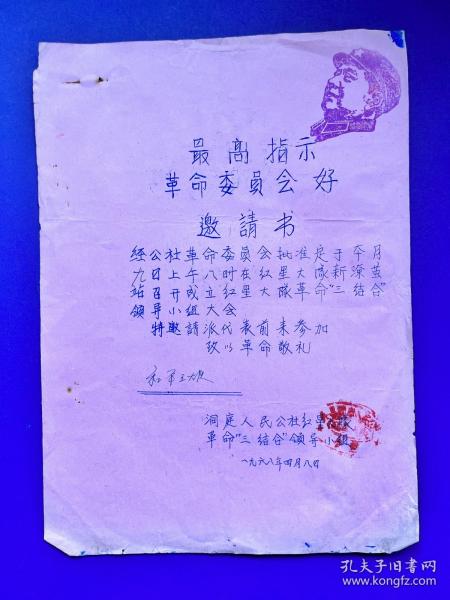 最高指示
革命委員会好
邀請书
经公社革命委員会批准定于本月
九日上午八时在红星大隊新深茧
站召开成立红星大隊革命“三结合”
領导小组大会
特邀請派代表前来参加
致以革命敬礼
洞庭人民公社红星大隊
革命“三结合”領导小组
一九六八年四月八日
孔夫子旧书网
www.kongfz.com